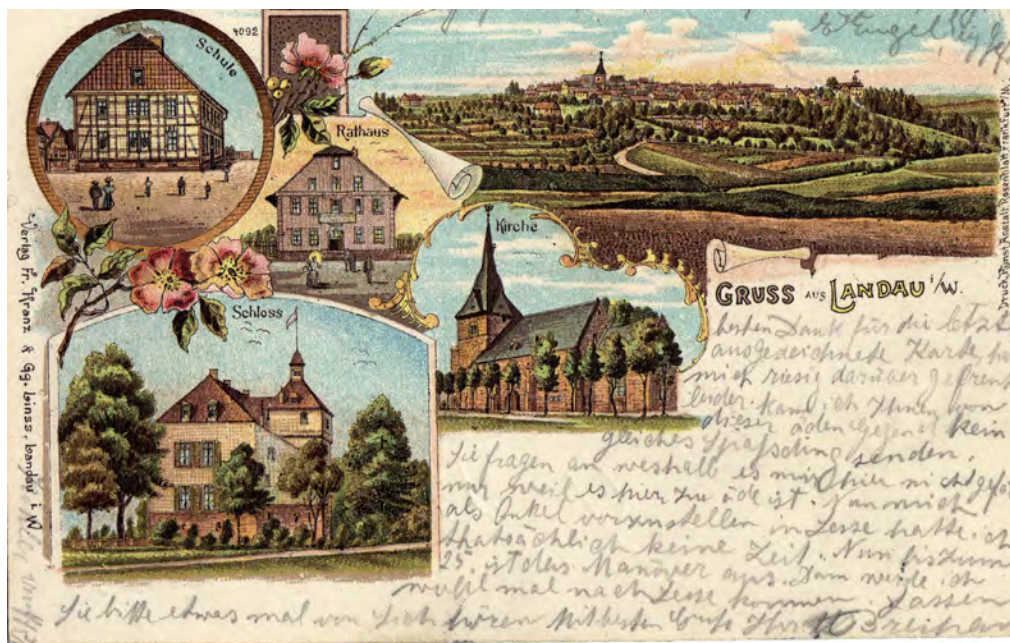 4092
Schule
Rathaus
Kirche
Schloss
GRUSS AUS LANDAU i/W.
Verlag Fr. Kranz & Gg. Leinss, Landau i. W.
Druck Kunst-Anstalt Rosenblatt Frankfurt a/M.
besten Dank für die letzt
ausgezeichnete Karte, ha
mich riesig darüber gefreut
leider kann ich Ihnen von
dieser öden Gegend kein
gleiches senden.
Sie fragen an weshalb es mir hier nicht gefä
nur weil es hier zu öde ist. mich
als Onkel vorzustellen in hatte ich
thatsächlich keine Zeit. Nun bis zum
25. ist das Manöver aus. Dann werde ich
wohl mal nach kommen. Lassen
Sie bitte etwas mal von Sich hören Mit besten Gruß